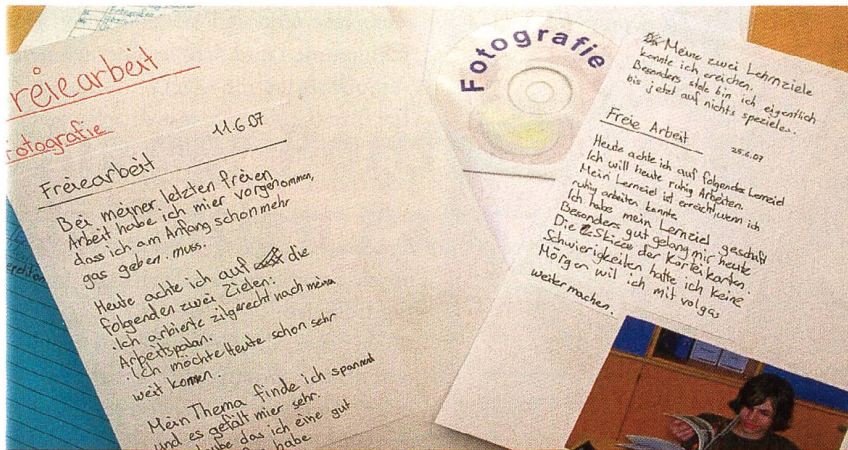 Freiearbeit
Fotografie
Freiearbeit
11.6.07
Bei meiner letzten freien
Arbeit habe ich mier vorgenommen,
dass ich am Anfang schon mehr
gas geben muss.
Heute achte ich auf die
folgenden zwei Zielen:
.Ich arbierte zilgerecht nach meinen
Arbeitspalan.
.Ich möchte Heute schon sehr
weit komen.
Mein Thema finde ich spannend
und es gefält mier sehr.
das ich eine gut
habe
Fotografie
Meine zwei Lehrnziele
konnte ich ereichen.
Besonders stolz bin ich eigentlich
bis jetzt auf nichts spezieles.
Freie Arbeit
25.6.07
Heute achte ich auf folgendes Lernziel
Ich will heute ruhig Arbeiten.
Mein Lernziel ist erreicht, wenn ich
ruhig arbeiten konnte.
Ich habe mein Lernziel geschaft
Besonders gut gelang mir heute
Die Skizze der Karteikarten.
Schwierigkeiten hatte ich keine
Mörgen wil ich mit volgas
weiter machen.